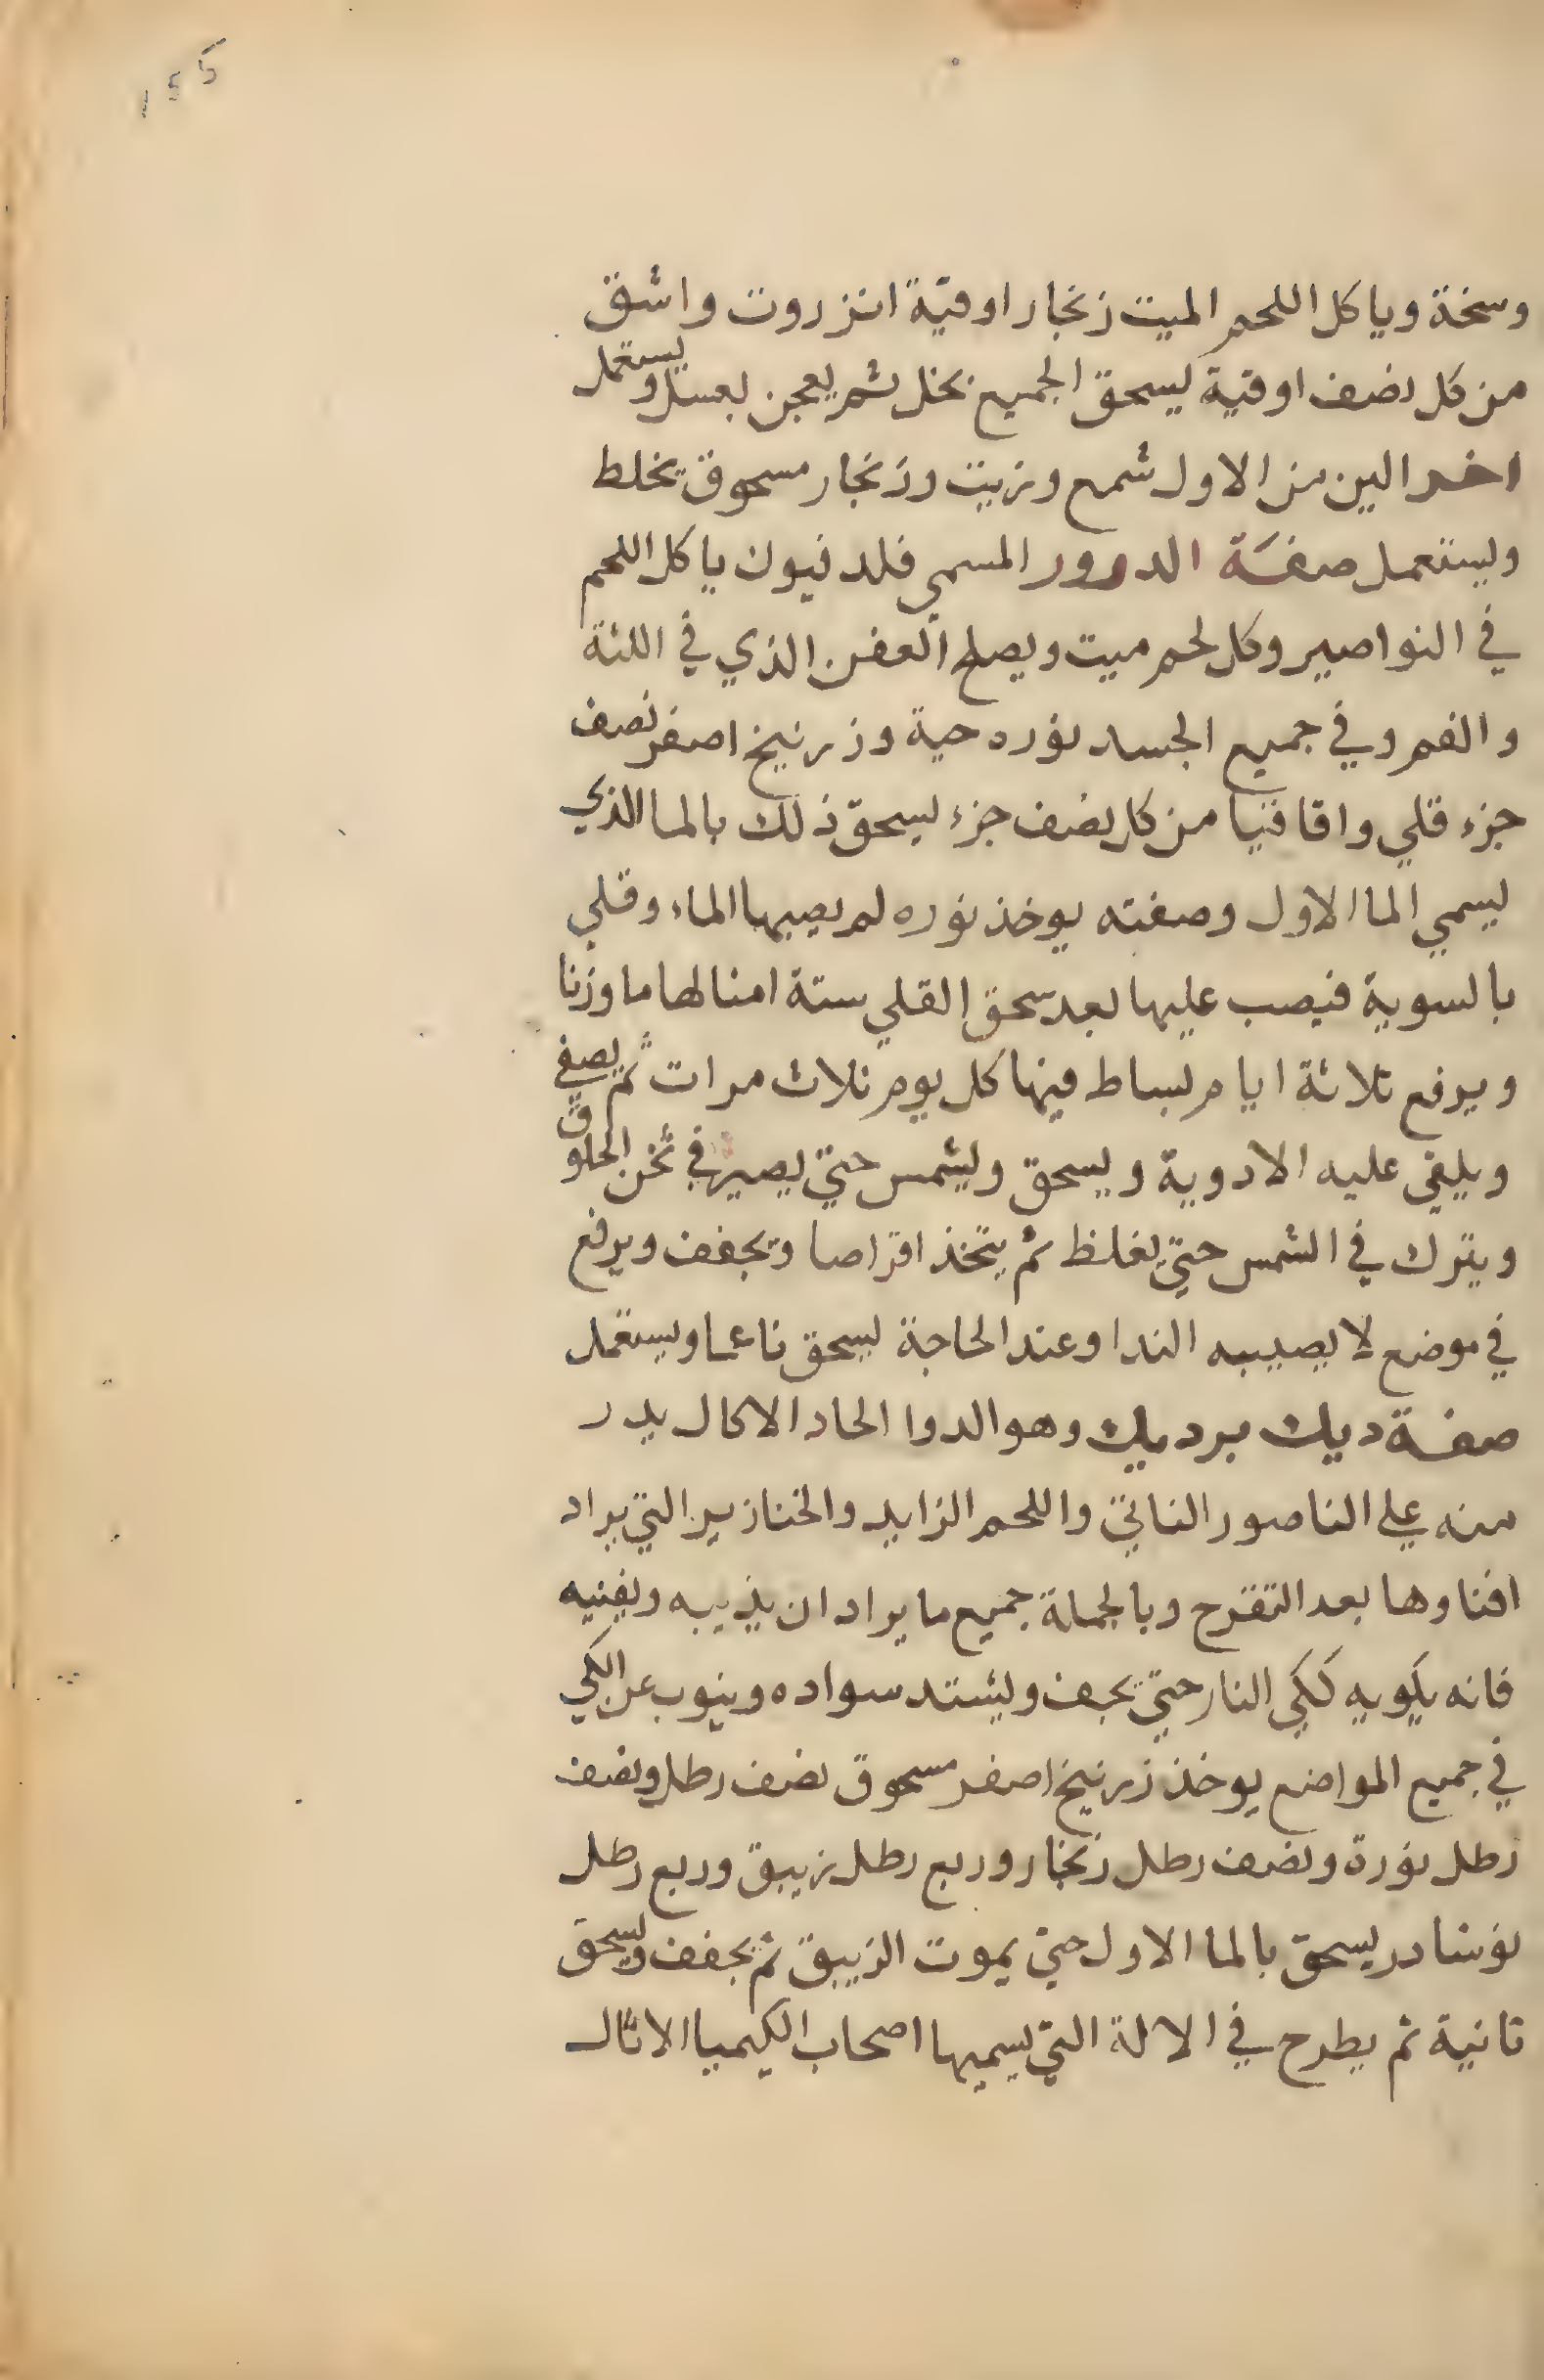 155
وسخة وياكل اللحم الميت زنجار اوقية انزروت واشق
من كل نصف اوقية يسحق الجميع بخل ثم يعجن بعسل ويستعمل
اخر الين من الاول شمع وزيت وزنجار مسحوق يخلط
ويستعمل صفة الدرور المسمي فلدفيون ياكل اللحم
في النواصير وكل لحم ميت ويصلح العفن الذي في اللثة
والفم وفي جميع الجسد نوره حية وزرنيخ اصفر نصف
جزء قلي واقاقيا من كل نصف جزء يسحق ذلك بالما الذي
يسمي الما الاول وصفته يوخذ نوره لم يصيبها الماء وقلي
بالسوية فيصب عليها بعد سحق القلي ستة امثالها ما وزنا
ويرفع ثلاثة ايام يساط فيها كل يوم ثلاث مرات ثم يصفي
ويلقي عليه الادوية ويسحق ويشمس حتي يصير في ثخن الخلوق
ويترك في الشمس حتي يغلظ ثم يتخذ اقراصا ويجفف ويرفع
في موضع لا يصيبه الندا وعند الحاجة يسحق ناعما ويستعمل
صفة ديك برديك وهو الدوا الحاد الاكال يدر
منه علي الناصور الناتي واللحم الزايد والخنازير التي يراد
افناوها بعد التقرح وبالجملة جميع ما يراد ان يذيبه ويفنيه
فانه يكويه ككي النار حتي يجف ويشتد سواده وينوب عن الكي
في جميع المواضع يوخذ زرنيخ اصفر مسحوق نصف رطل ونصف
رطل نورة ونصف رطل زنجار وربع رطل زيبق وربع رطل
نوشادر يسحق بالما الاول حتي يموت الزيبق ثم يجفف ويسحق
ثانية ثم يطرح في الالة التي يسميها اصحاب الكيميا الاثال